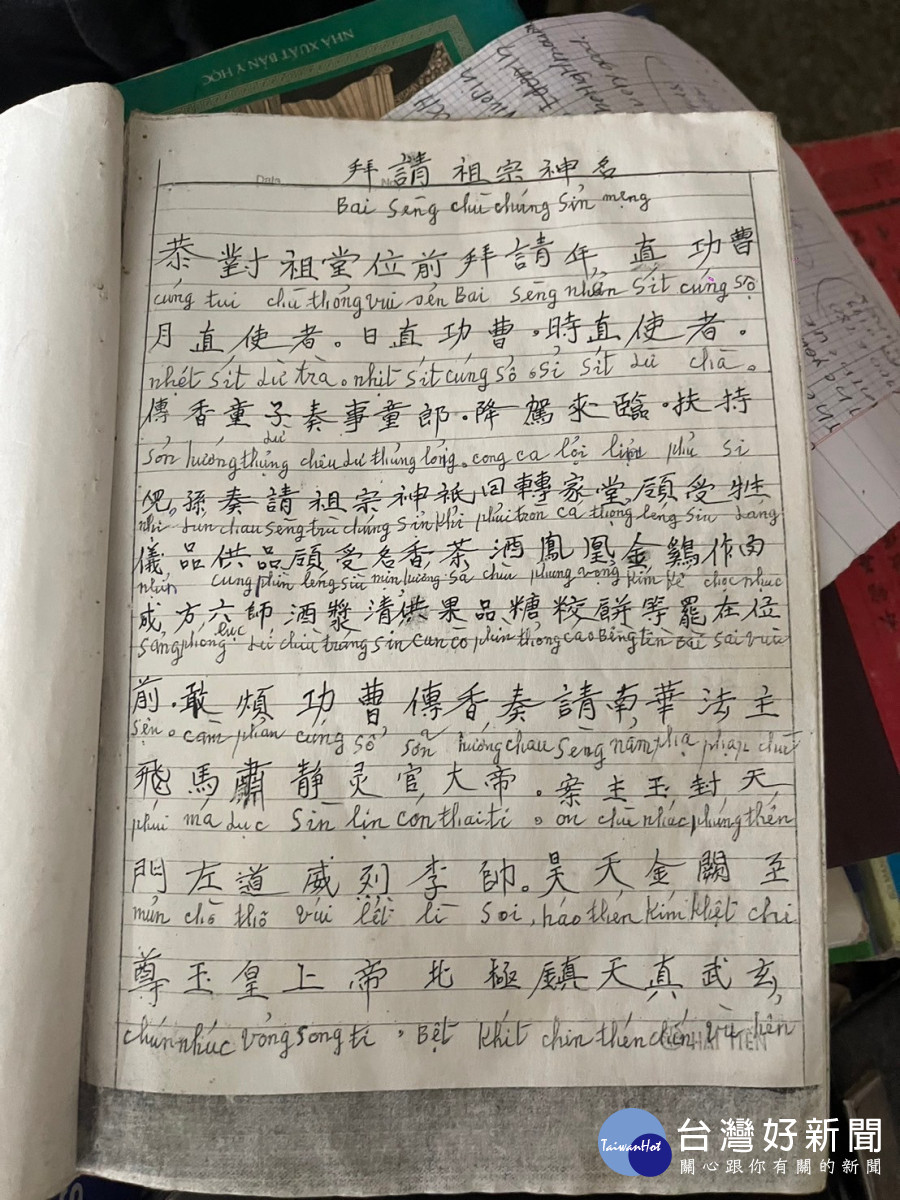 NHÀ XUẤT BẢN Y HỌC
Date
No
拜請祖宗神名
Bai Sēng chū chúng Sín mẹng
恭對祖堂位前拜請年直功曹
cúng tui chū thóng vùi sẻn Bai Sēng nhẩn Sít cúng sộ
月直使者。日直功曹。時直使者。
nhét sít dử trà。nhit sít cúng sổ。sỉ sít dử chā。
傳香童子奏事童郎。降駕來臨。扶持
sỏn hương thủng chẻu dư thủng lỏng。cong ca lọi liện phủ si
兒孫奏請祖宗神祇回轉家堂,領受牲
nhi sun chau sēng tru chúng sỉn khỉ phủi tron ca thọng lēng siu sáng
儀品供品領受名香茶酒鳳凰金鷄作肉
nhún cung phìn lēng siu mịn hương sa chiù phung vọng kím kê chọc nhục
成方六師酒漿清供果品糖粄餅等罷在位
sang phong lục sú chiù trang sin cun cò phin thong cao Bēng tèn Bài sai vùi
前。敢煩功曹傳香奏請南華法主
sẹn。càm phản cúng sổ sỏn hương chau sēng nảm phạ phạp chū
飛馬肅靜灵官大帝。案主玉封天
phui má dục sin lịn cón thai ti。on chū nhúc phúng thén
門左道威烈李帥。昊天金闕至
mún chō thō vúi lết lī soi, háo thén kím khệt chi
尊玉皇上帝北極鎮天真武玄
chún nhúc vỏng song ti。Bệt khít chin thén chún vū hẻn
HẢI TIẾN
TaiwanHot
台灣好新聞
關心跟你有關的新聞